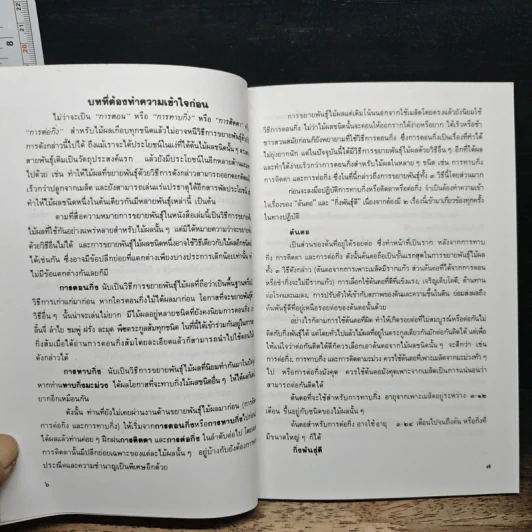 บทที่ต้องทำความเข้าใจก่อน
ไม่ว่าจะเป็น "การตอน" หรือ "การทาบกิ่ง" หรือ "การติดตา"
"การต่อกิ่ง" สำหรับไม้ผลเกือบทุกชนิดแล้วไม่อาจหนีวิธีการขยายพันธุ์ด้วย
การดังกล่าวนี้ไปได้ ถึงแม้เราจะได้ประโยชน์ในแง่ที่ได้ต้นไม้ผลชนิดนั้น ๆ
สายพันธุ์เดิมเป็นวัตถุประสงค์แรก แล้วยังมีประโยชน์ในอีกหลายด้าน
ไปด้วย เช่น ทำให้ไม้ผลที่ขยายพันธุ์ด้วยวิธีการดังกล่าวสามารถออกดอก
เร็วกว่าปลูกจากเมล็ด และยังสามารถเล่นแร่แปรธาตุได้อีกสารพัดประโยชน์
ทำให้ไม้ผลชนิดหนึ่งในต้นเดียวกันมีหลายพันธุ์เหล่านี้ เป็นต้น
ตามที่สื่อความหมายการขยายพันธุ์ในหนังสือเล่มนี้เป็นวิธีการขยาย
ไม้ผลที่ใช้กันอย่างแพร่หลายสำหรับไม้ผลนั้น ๆ แต่มิได้หมายความว่าจะ
ด้วยวิธีอื่นไม่ได้ และการขยายพันธุ์ไม้ผลชนิดหนึ่งอาจใช้วิธีเดียวกับไม้ผลอีกชนิด
ได้เช่นกัน ซึ่งอาจมีข้อปลีกย่อยที่แตกต่างเพียงบางประการเล็กน้อยเท่านั้น
ไม่มีข้อแตกต่างกันเลยก็มี
การตอนกิ่ง นับเป็นวิธีการขยายพันธุ์ไม้ผลที่ถือว่าเป็นพื้นฐาน
วิธีการเก่าแก่มาก่อน หากใครตอนกิ่งไม่ได้ผลมาก่อน โอกาสที่จะขยายพันธุ์
วิธีอื่น ๆ นั้นน่าจะเล่นไม่ยาก มีไม้ผลอยู่หลายชนิดที่ยังคงนิยมการตอน
ลิ้นจี่ ลำไย ชมพู่ ฝรั่ง ละมุด พืชตระกูลส้มทุกชนิด
กิ่งส้มเมื่อได้อ่านการตอนกิ่งส้มโดยละเอียดแล้วก็สามารถนำไปใช้
ดังกล่าวได้
การทาบกิ่ง นับเป็นวิธีการขยายพันธุ์ไม้ผลที่นิยมทำกันมาก
หากท่านทาบกิ่งมะม่วง ได้ผลโอกาสที่จะทาบกิ่งไม้ผลชนิดอื่น ๆ ให้ได้ผล
ยากอีกเหมือนกัน
ดังนั้น ท่านที่ยังไม่เคยผ่านงานด้านขยายพันธุ์ไม้ผลมาก่อน
การต่อกิ่ง และการทาบกิ่ง) ให้เริ่มจากการตอนกิ่งหรือการทาบกิ่ง
ได้ผลแล้วท่านค่อย ๆ ฝึกฝนการติดตา และการต่อกิ่ง ในลำดับต่อไป
การติดตานั้นมีปลีกย่อยเฉพาะของแต่ละไม้ผลนั้น ๆ อยู่บ้าง
ประณีตและความชำนาญเป็นพิเศษอีกด้วย
๖
การขยายพันธุ์ไม้ผลแต่เดิมโน้นนอกจากใช้เมล็ดโดยตรงแล้วยังนิยมใช้
วิธีการตอนกิ่ง ไม่ว่าไม้ผลชนิดนั้นจะตอนให้ออกรากได้ง่ายหรือยาก ได้เร็วหรือช้า
ชาวสวนสมัยก่อนก็ยังพยายามที่ใช้วิธีการตอนกิ่ง ซึ่งการตอนกิ่งเป็นเรื่องที่ทำได้
ไม่ยุ่งยากนัก แต่ในปัจจุบันนี้ได้มีการขยายพันธุ์ไม้ผลด้วยวิธีอื่น ๆ อีกที่ได้ผล
และทำได้ง่ายเร็วกว่าการตอนกิ่งสำหรับไม้ผลในหลาย ๆ ชนิด เช่น การทาบกิ่ง
การติดตา และการต่อกิ่ง ซึ่งในที่นี้กล่าวถึงการขยายพันธุ์ทั้ง ๓ วิธีนี้โดยส่วนมาก
ก่อนจะลงมือปฏิบัติการทาบกิ่งหรือติดตาหรือต่อกิ่ง จำเป็นต้องทำความเข้า
ใจเรื่องของ "ต้นตอ" และ "กิ่งพันธุ์ดี" เนื่องจากต้องมี ๓ เรื่องนี้เข้ามาเกี่ยวข้องทุกครั้ง
ในทางปฏิบัติ
ต้นตอ
เป็นส่วนของต้นที่อยู่ใต้รอยต่อ ซึ่งทำหน้าที่เป็นราก หลังจากการทาบ
กิ่ง การติดตา และการต่อกิ่ง ดังนั้นต้นตอถือเป็นขั้นแรกสุดในการขยายพันธุ์ไม้ผล
ทั้ง ๓ วิธีดังกล่าว (ต้นตอจากการเพาะเมล็ดมีรากแก้ว ส่วนต้นตอที่ได้จากการตอน
หรือชำกิ่งจะไม่มีรากแก้ว) การเลือกใช้ต้นตอที่ดีที่แข็งแรง, เจริญเติบโตดี, ต้านทาน
ต่อโรคและแมลง, การปรับตัวให้เข้ากับสภาพของดินและความชื้นในดิน ย่อมส่งผลถึง
ต้นพันธุ์ดีที่อยู่เหนือรอยต่อของต้นตอนั้นด้วย
อย่างไรก็ตามการใช้ต้นตอที่ผิด ทำให้เกิดรอยต่อที่ไม่สมบูรณ์หรือต่อกันไม่
ติดกับกิ่งพันธุ์ได้ แต่โดยทั่วไปแล้วไม้ผลที่อยู่ในตระกูลเดียวกันมักต่อกันติดได้ แต่เพื่อ
ให้แน่ใจว่าต่อกันติดได้ดีก็ควรเลือกเอาต้นตอจากไม้ผลชนิดนั้น ๆ จะดีกว่า เช่น
การต่อกิ่ง, การทาบกิ่ง และการติดตามะม่วง ควรใช้ต้นตอที่เพาะเมล็ดจากมะม่วงทั่ว ๆ
ไป หรือการต่อกิ่งมังคุด ควรใช้ต้นตอมังคุดเพาะจากเมล็ดเป็นการแน่นอนว่า
สามารถต่อกันติดได้
ต้นตอที่จะใช้สำหรับการทาบกิ่ง อายุจากเพาะเมล็ดอยู่ระหว่าง ๓-๑๒
เดือน ขึ้นอยู่กับชนิดของไม้ผลนั้น ๆ
ต้นตอสำหรับการต่อกิ่ง อาจใช้อายุ ๓-๒๔ เดือนไปจนถึงต้น หรือกิ่งที่
มีขนาดใหญ่ ๆ ก็ได้
กิ่งพันธุ์ดี
๗